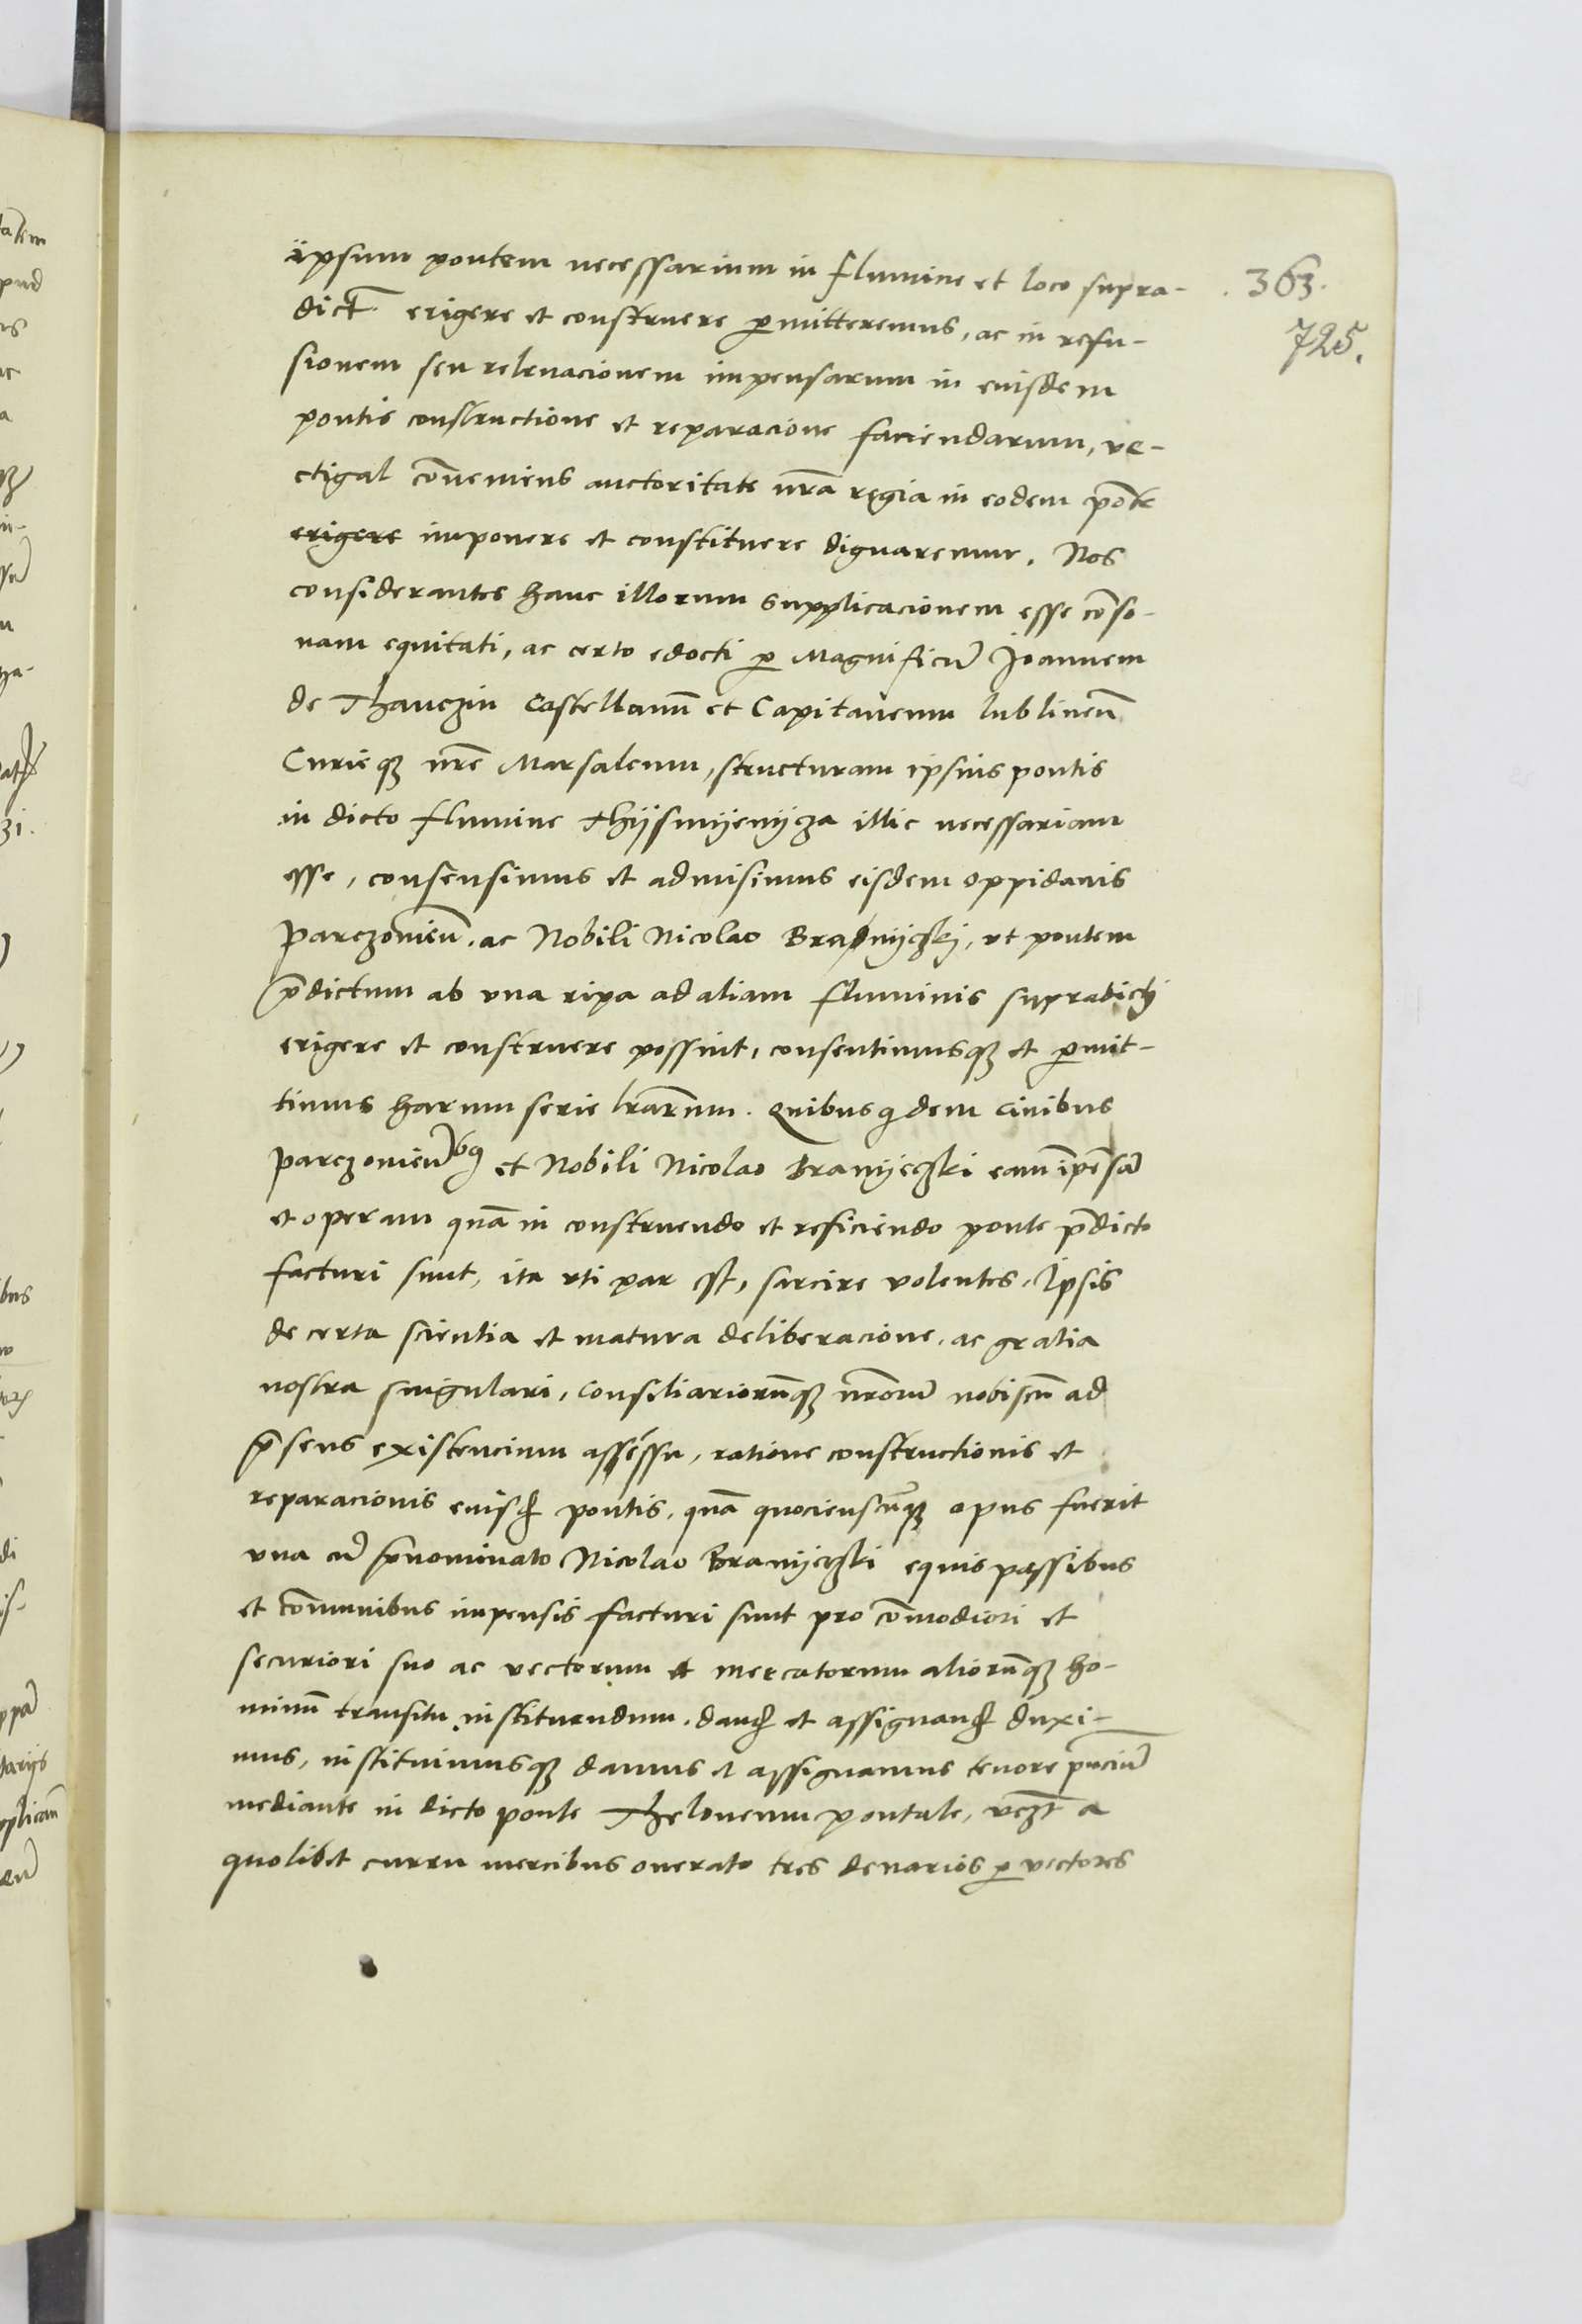 ipsum pontem necessarium in flumine et loco supra-
dict. erigere et construere p̱mitteremus, ac in refu-
sionem seu relevacionem impensarum in euisdem
pontis constructione et reparacione faciendarum, ve-
ctigal cōveniens auctoritate nr̄a regia in eodem pōte
erigere imponere et constituere dignaremur. Nos
considerantes hanc illorum supplicacionem esse cōso-
nam equitati, ac certo edocti p̱ Magnificū Joannem
de Thanczin Castellanū et Capitaneum lublineñ
Curieqꝫ nr̄e Marsalcum, structuram ipsius pontis
in dicto flumine Thijsmijenijcza illic necessariam
esse, consensimus et admisimus eisdem oppidanis
parczovieñ. ac Nobili Nicolao Branijczkj, ut pontem
p̄dictum ab una ripa ad aliam fluminis supradicti
erigere et construere possint, consentimusqꝫ et p̱mit-
timus harum serie lrārum. Quibus qdem civibus
parczovieñbꝰ et Nobili Nicolao Branijeczki eam īpēsā
et operam quā in construendo et reficiendo ponte p̄dicto
facturi sunt, ita uti par est, sarcire volentes, Ipsis
de certa scientia et matura deliberacione, ac gratia
nostra singulari, consiliariorūqꝫ nr̄orū nobiscū ad
p̄sens existencium assessu, ratione constructionis et
reparacionis euisd̄ pontis, quā quocienscūqꝫ opus fuerit
una cū p̄nominato Nicolao Branijczki equis passibus
et cōmunibus impensis facturi sunt pro cōmodiori et
securiori suo ac vectorum et mercatorum aliorūqꝫ ho-
minū transitu instituendum, dand̄ et assignand̄ duxi-
mus, instituimusqꝫ damus et assignamus tenore pn̄ciū
mediante in dicto ponte Theloneum pontale, vczt̄ a
quolibet curru mercibus onerato tres denarios p̱ vectores
363.
725.